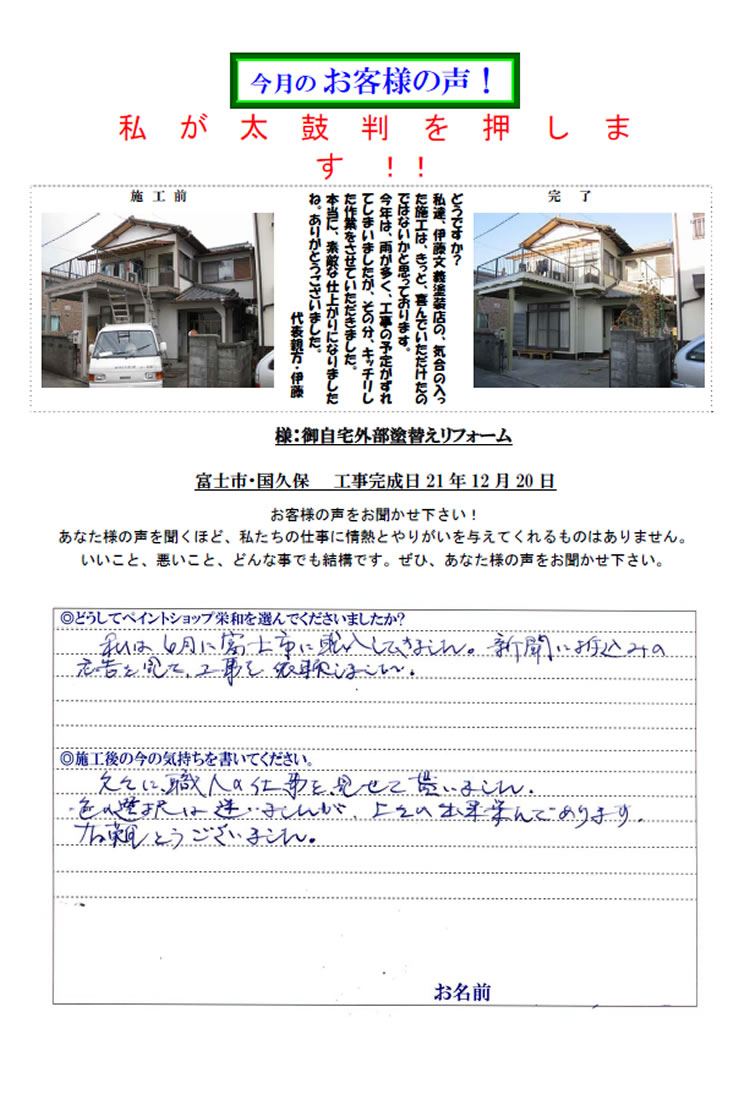 今月の お客様の声！
私が太鼓判を押しま
す!!
施工前
どうですか？
私達、伊藤文義塗装店の、気合の入っ
た施工は、きっと、喜んでいただけたの
ではないかと思っております。
今年は、雨が多く、工事の予定がずれ
てしまいましたが、その分、キッチリし
た作業をさせていただきました。
本当に、素敵な仕上がりになりました
ね。ありがとうございました。
代表親方・伊藤
完了
様：御自宅外部塗替えリフォーム
富士市・国久保 工事完成日21年12月20日
お客様の声をお聞かせ下さい！
あなた様の声を聞くほど、私たちの仕事に情熱とやりがいを与えてくれるものはありません。
いいこと、悪いこと、どんな事でも結構です。ぜひ、あなた様の声をお聞かせ下さい。
◎どうしてペイントショップ栄和を選んでくださいましたか？
私は6月に富士市に転入してきました。新聞に折込みの
広告を見て、工事を依頼しました。
◎施工後の今の気持ちを書いてください。
に、職人の仕事を見せて貰いました。
色の選択は迷いましたが、上々の出来栄えであります。
有難とうございました。
お名前